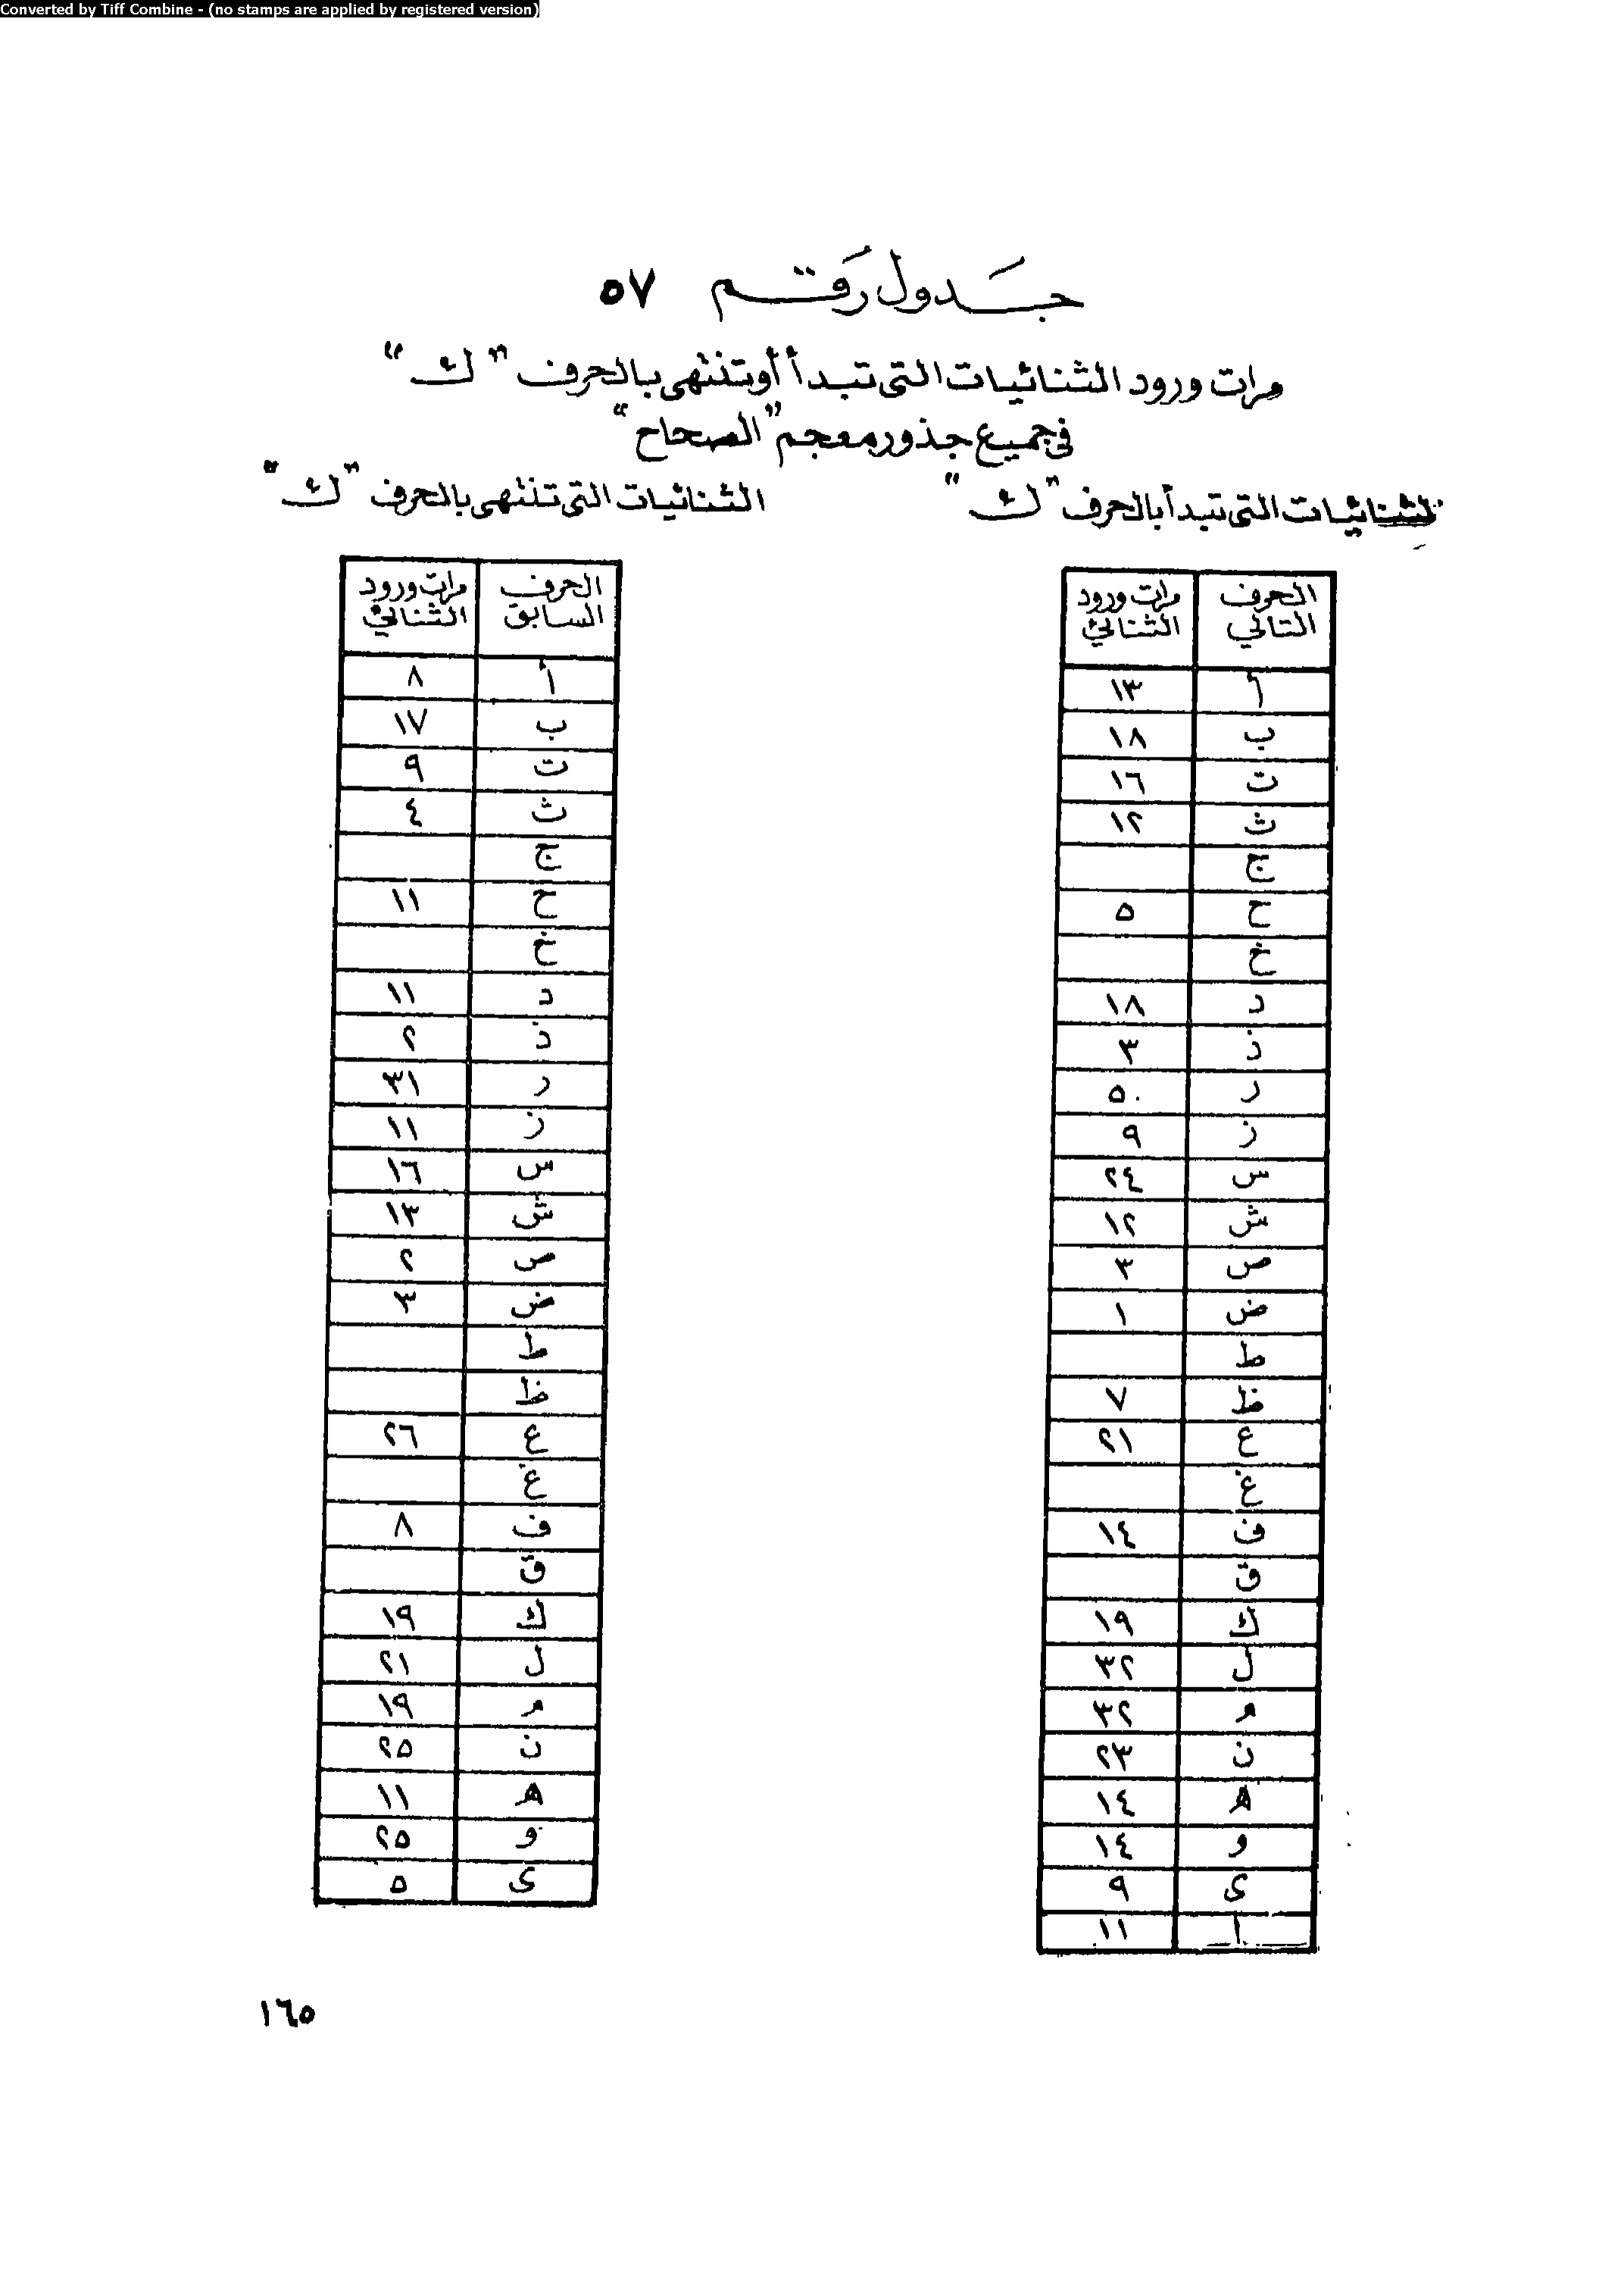 Converted by Tiff Combine - (no stamps are applied by registered version)
جَدول رَقم ٥٧
مرات ورود الثنائيات التى تبدأ أو تنتهى بالحرف "ك"
فى جميع جذور معجم "الصحاح"
الثنائيات التى تبدأ بالحرف "ك"
الحرف التالي مرات ورود الثنائي
أ ١٣
ب ١٨
ت ١٦
ث ١٢
ج
ح ٥
خ
د ١٨
ذ ٣
ر ٥٠
ز ٩
س ٢٤
ش ١٢
ص ٣
ض ١
ط
ظ ٧
ع ٢١
غ
ف ١٤
ق
ك ١٩
ل ٣٢
م ٣٢
ن ٢٣
ه ١٤
و ١٤
ى ٩
ا ١١
الثنائيات التى تنتهى بالحرف "ك"
الحرف السابق مرات ورود الثنائي
أ ٨
ب ١٧
ت ٩
ث ٤
ج
ح ١١
خ
د ١١
ذ ٢
ر ٣١
ز ١١
س ١٦
ش ١٣
ص ٢
ض ٣
ط
ظ
ع ٢٦
غ
ف ٨
ق
ك ١٩
ل ٢١
م ١٩
ن ٢٥
ه ١١
و ٢٥
ى ٥
١٦٥